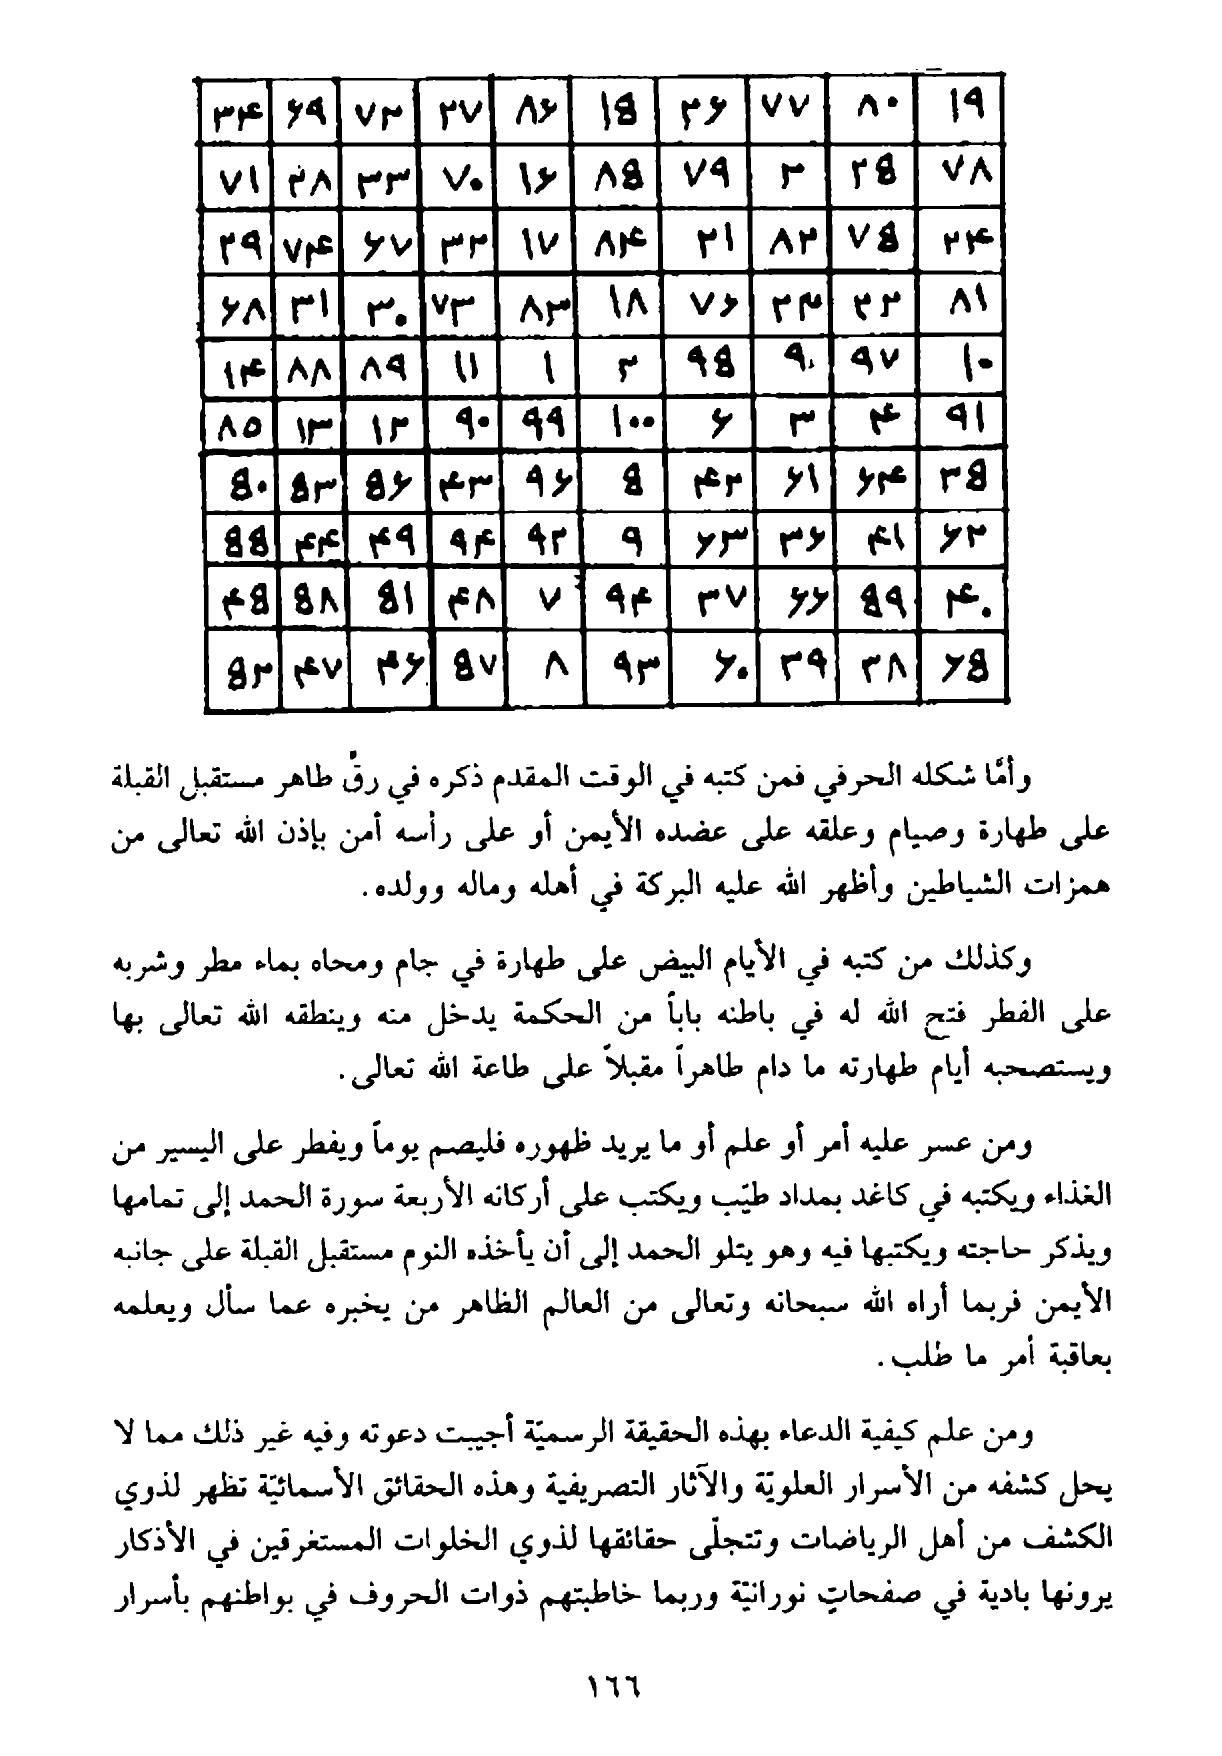 ١٩ ٨٠ ٧٧ ٢۶ ١٥ ٨۶ ٢٧ ٧٢ ۶٩ ٣۴
٧٨ ٢٥ ٢ ٧٩ ٨٥ ١۶ ٧٠ ٣٣ ٢٨ ٧١
٢۴ ٧٥ ٨٢ ٢١ ٨۴ ١٧ ٣٢ ۶٧ ٧۴ ٢٩
٨١ ٢٢ ٢٣ ٧۶ ١٨ ٨٣ ٧٣ ٣٠ ٣١ ۶٨
١٠ ٩٧ ٩٠ ٩٥ ٢ ١ ١١ ٨٩ ٨٨ ١۴
٩١ ۴ ٣ ۶ ١٠٠ ٩٩ ٩٠ ١٢ ١٣ ٨٥
٣٥ ۶۴ ۶١ ۴٢ ٥ ٩۶ ۴٣ ٥۶ ٥٣ ٥٠
۶٢ ۴١ ٣۶ ۶٣ ٩ ٩٢ ٩۴ ۴٩ ۴۴ ٥٥
۴٠ ٥٩ ۶۶ ٣٧ ٩۴ ٧ ۴٨ ٥١ ٥٨ ۴٥
۶٥ ٣٨ ٣٩ ۶٠ ٩٣ ٨ ٥٧ ۴۶ ۴٧ ٥٢
وأمَّا شكله الحرفي فمن كتبه في الوقت المقدم ذكره في رقٍّ طاهر مستقبل القبلة
على طهارة وصيام وعلقه على عضده الأيمن أو على رأسه أمن بإذن الله تعالى من
همزات الشياطين وأظهر الله عليه البركة في أهله وماله وولده.
وكذلك من كتبه في الأيام البيض على طهارة في جام ومحاه بماء مطر وشربه
على الفطر فتح الله له في باطنه باباً من الحكمة يدخل منه وينطقه الله تعالى بها
ويستصحبه أيام طهارته ما دام طاهراً مقبلاً على طاعة الله تعالى.
ومن عسر عليه أمر أو علم أو ما يريد ظهوره فليصم يوماً ويفطر على اليسير من
الغذاء ويكتبه في كاغد بمداد طيّب ويكتب على أركانه الأربعة سورة الحمد إلى تمامها
ويذكر حاجته ويكتبها فيه وهو يتلو الحمد إلى أن يأخذه النوم مستقبل القبلة على جانبه
الأيمن فربما أراه الله سبحانه وتعالى من العالم الظاهر من يخبره عما سأل ويعلمه
بعاقبة أمر ما طلب.
ومن علم كيفية الدعاء بهذه الحقيقة الرسميّة أجيبت دعوته وفيه غير ذلك مما لا
يحل كشفه من الأسرار العلويّة والآثار التصريفية وهذه الحقائق الأسمائيّة تظهر لذوي
الكشف من أهل الرياضات وتتجلّى حقائقها لذوي الخلوات المستغرقين في الأذكار
يرونها بادية في صفحاتٍ نورانيّة وربما خاطبتهم ذوات الحروف في بواطنهم بأسرار
١٦٦